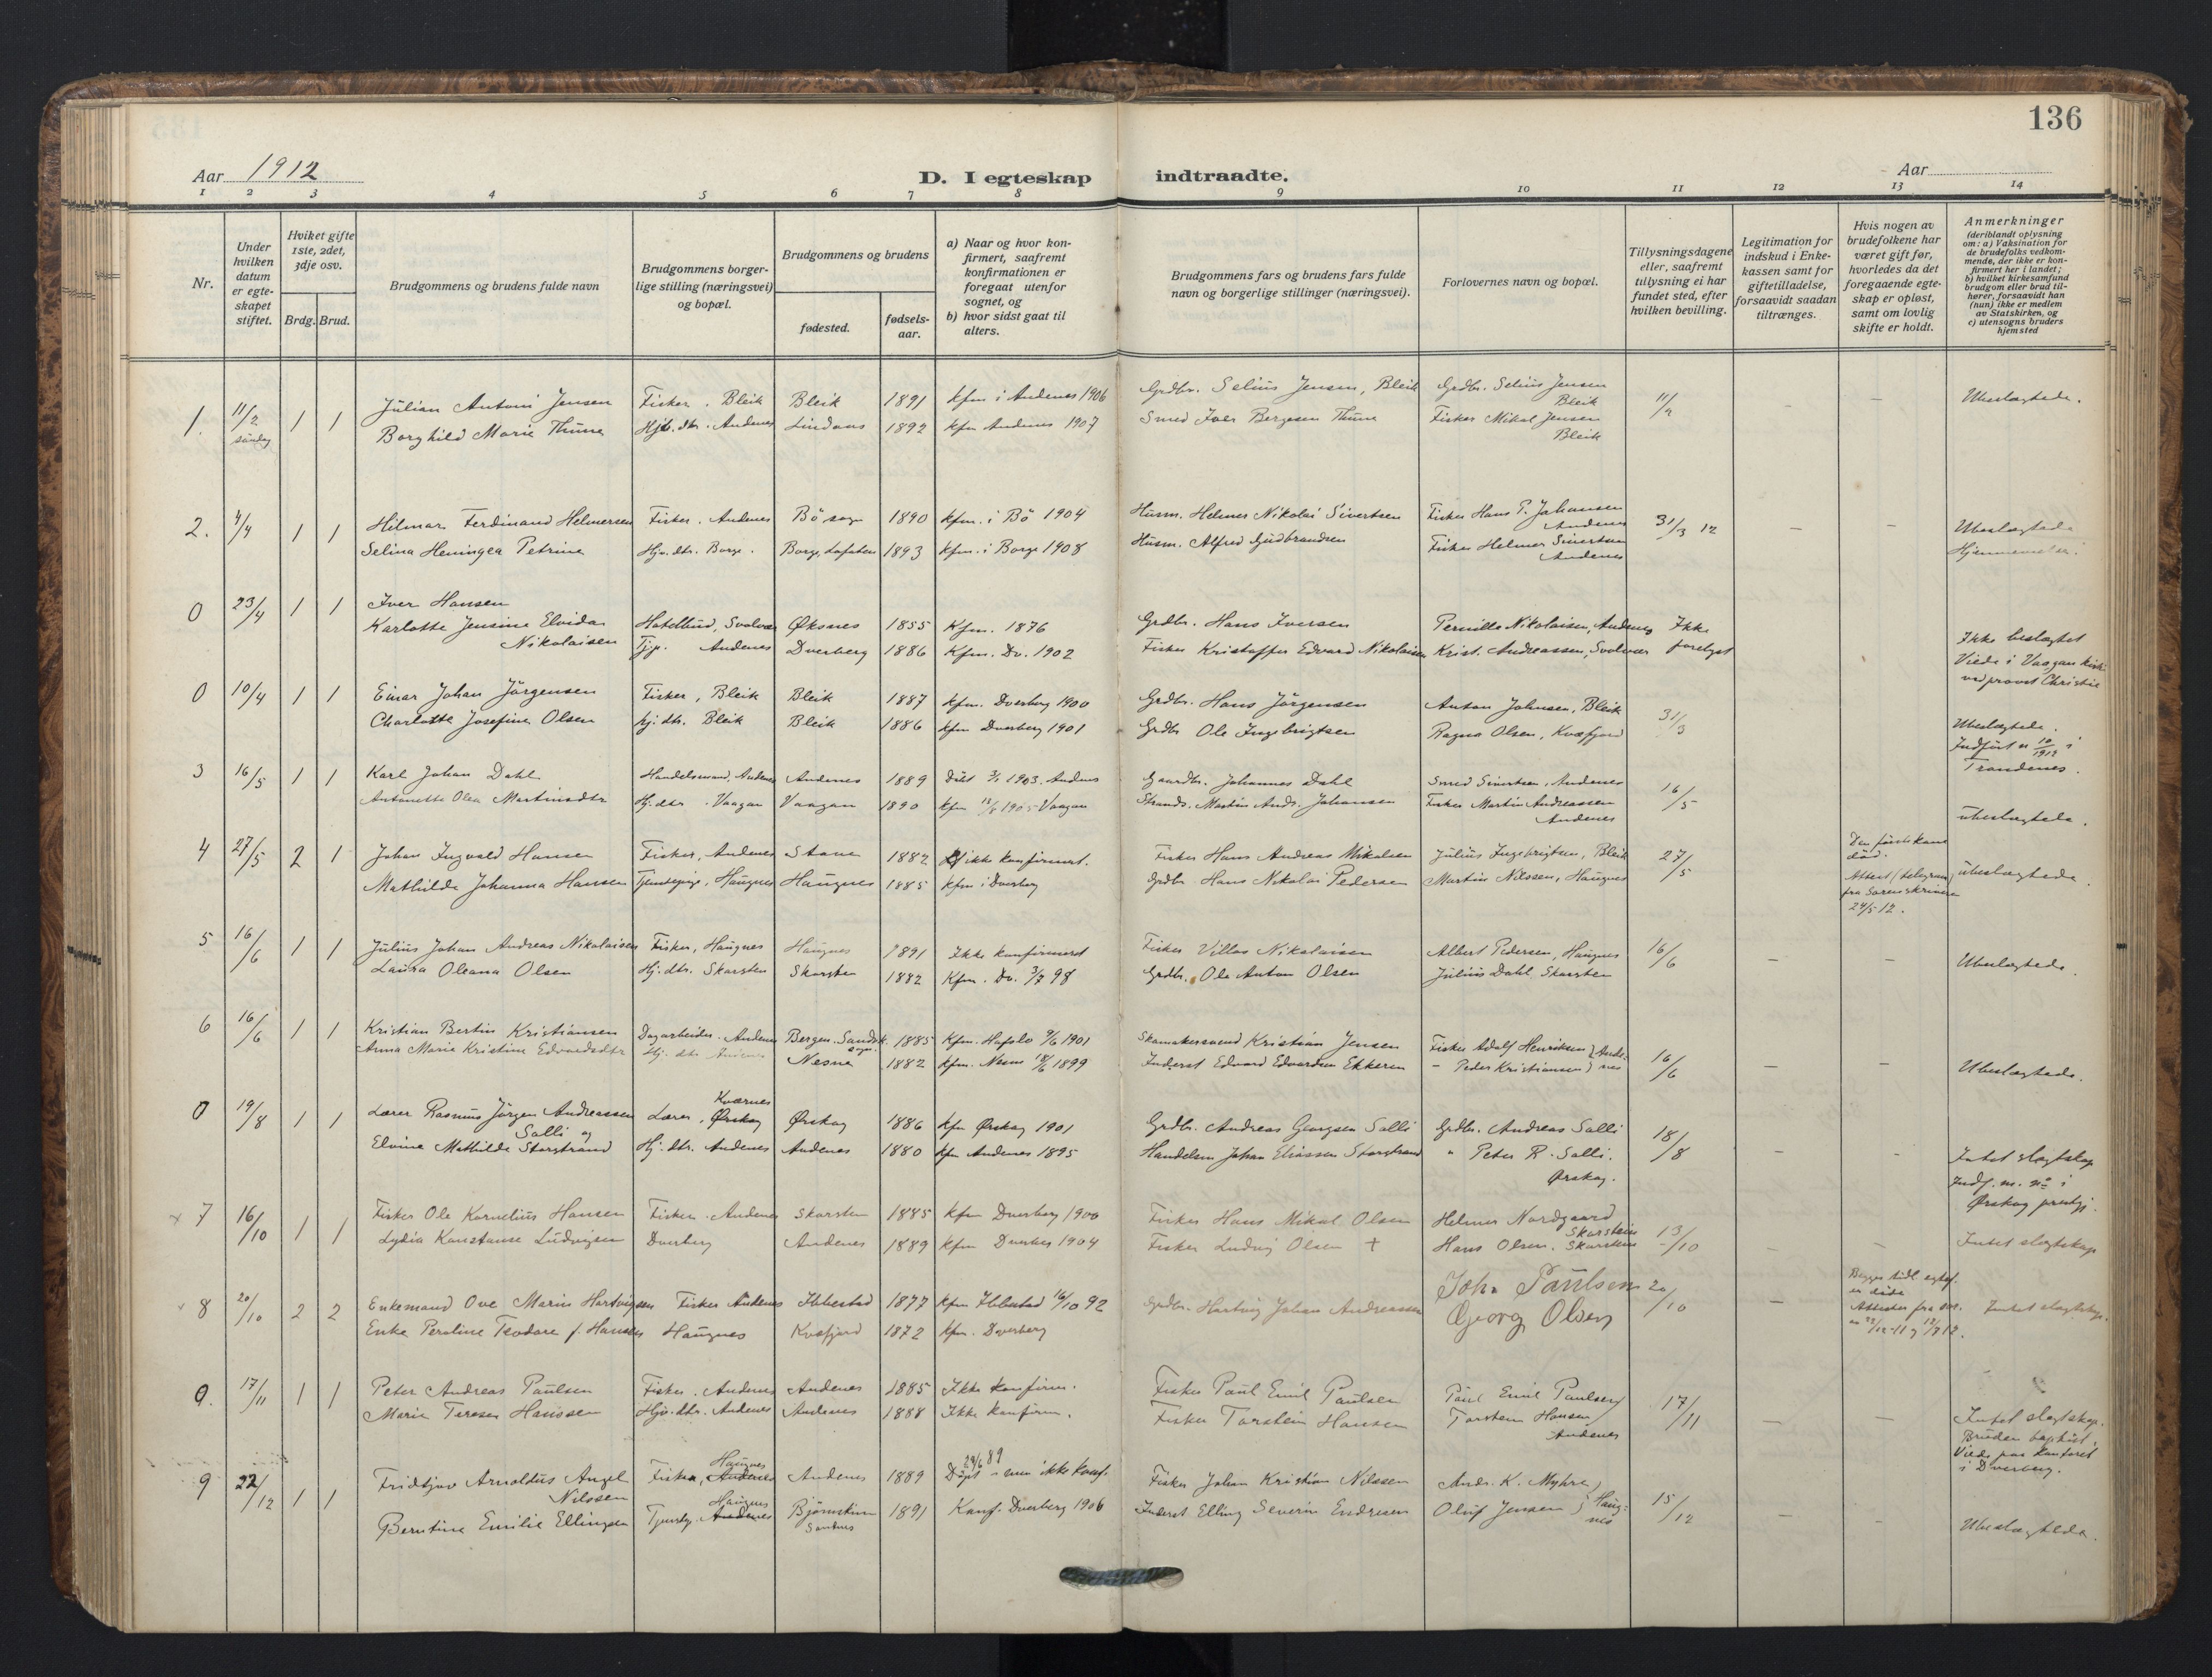 136
Aar 1912
D. I egteskap indtraadte.
Aar
1 2 3 4 5 6 7 8 9 10 11 12 13 14
Nr.
Under hvilken datum er egteskapet stiftet.
Hviket gifte 1ste, 2det, 3dje osv.
Brdg. Brud.
Brudgommens og brudens fulde navn
Brudgommens borgerlige stilling (næringsvei) og bopæl.
Brudgommens og brudens
fødested.
fødselsaar.
a) Naar og hvor konfirmert, saafremt konfirmationen er foregaat utenfor sognet, og
b) hvor sidst gaat til alters.
Brudgommens fars og brudens fars fulde navn og borgerlige stillinger (næringsvei).
Forlovernes navn og bopæl.
Tillysningsdagene eller, saafremt tillysning ei har fundet sted, efter hvilken bevilling.
Legitimation for indskud i Enkekassen samt for giftetilladelse, forsaavidt saadan tiltrænges.
Hvis nogen av brudefolkene har været gift før, hvorledes da det foregaaende egteskap er opløst, samt om lovlig skifte er holdt.
Anmerkninger (deriblandt oplysning om: a) Vaksination for de brudefolks vedkommende, der ikke er konfirmert her i landet; b) hvilket kirkesamfund brudgom eller brud tilhører, forsaavidt han (hun) ikke er medlem av Statskirken, og c) utensogns bruders hjemsted
1. 11/2 søndag 1 1 Julian Antoni Jensen Fisker. Bleik Bleik 1891 kfm i Andenes 1906 Grdbr. Selius Jensen, Bleik Grdbr. Selius Jensen Bleik 11/2 – – Ubeslægtede.
Borghild Marie Thune Hjv. dtr. Andenes Lindaas 1892 kfm Andenes 1907 Smed Iver Bergesen Thune Fisker Mikal Jensen Bleik
2. 4/4 1 1 Hilmar Ferdinand Helmersen Fisker. Andenes Bö sogn 1890 kfm. i Bö 1904 Husm. Helmer Nikolai Sivertsen Fisker Hans P. Johansen Andenes 31/3 12 – – Ubeslægtede
Selina Heningea Petrine Hjv. dtr. Borge. Borge, Lofoten 1893 kfm. i Borge 1908 Husm. Alfred Gudbrandsen Fisker Helmer Sivertsen Andenes
0 23/4 1 1 Iver Hansen Hotelbud, Svolvær Øksnes 1855 Kfm. 1876 Grdbr. Hans Iversen Pernille Nikolaisen, Andenes Ikke forelyst
Karlotte Jensine Elvida Nikolaisen Tjp. Andenes Dverberg 1886 Kfm. Dv. 1902 Fisker Kristoffer Edvard Nikolaisen Krist. Andreassen, Svolvær Ikke beslægtet Viede i Vaagan kirke ved provst Christie
0 10/4 1 1 Einar Johan Jörgensen Fisker, Bleik Bleik 1887 kfm. Dverberg 1900 Grdbr. Hans Jörgensen Anton Johnsen, Bleik 31/3
Charlotte Josefine Olsen hj. dtr. Bleik Bleik 1886 kfm Dverberg 1901 Grdbr Ole Ingebrigtsen Ragna Olsen, Kvæfjord Ubeslægtede. Indført n 10/1912 i Trondenes.
3 16/5 1 1 Karl Johan Dahl Handelsmand, Andenes Andenes 1889 1903. Andnes Gaardbr. Johannes Dahl Smed Sivertsen, Andenes 16/5
Antonette Olea Martinsdtr Hj. dtr. Vaagan Vaagan 1890 kfm 1905 Vaagan Strands. Martin Andr. Johansen Fisker Martin Andreassen Andenes ubeslægtede.
4 27/5 2 1 Johan Ingvald Hansen Fisker, Andenes Stave 1882 ikke konfirmert. Fisker Hans Andreas Mikalsen Julius Ingebrigtsen, Bleik 27/5 Den første kone død. Attest (telegram) fra Sorenskriveren 24/5 12.
Mathilde Johanna Hansen Tjenestepige, Haugnes Haugnes 1885 kfm i Dverberg Grdbr Hans Nikolai Pedersen Martin Nilssen, Haugnes ubeslægtede.
5 16/6 1 1 Julius Johan Andreas Nikolaisen Fisker, Haugnes Haugnes 1891 Ikke konfirmert Fisker Villas Nikolaisen Albert Pedersen, Haugnes 16/6 – –
Laura Oleana Olsen Hj. dtr. Skarsten Skarsten 1882 Kfm. Dv. 3/7 98 Grdbr. Ole Anton Olsen Julius Dahl Skarsten Ubeslægtede.
6 16/6 1 1 Kristian Bertin Kristiansen Dagarbeider. Andenes Bergen. Sandvk. sogn. 1885 Kfm. Hafslo 9/6 1901 Skomakersvend Kristian Jensen Fisker Adolf Henriksen } Andenes 16/6 – –
Anna Marie Kristine Edvardsdtr Hj. dtr Andenes Nesna 1882 kfm. Nesna 18/6 1899 Inderst Edvard Edvardsen Ekkeren " Peder Kristiansen } Ubeslægtede.
0 19/8 1 1 Lærer Rasmus Jörgen Andreassen Solli og Lærer, Kværnes Ørskog Ørskog 1886 kfm Ørskog 1901 Grdbr. Andreas Georgsen Solli Grdbr. Andreas Solli 18/8 – –
Elvine Mathilde Storstrand Hj. dtr. Andenes Andenes 1880 kfm Andenes 1895 Handelsm Johan Eliassen Storstrand " Peter R. Solli. Ørskog. Intet slegtskap Indf. m. no i Ørskog prestgj.
7 16/10 1 1 Fisker Ole Kornelius Hansen Fisker. Andenes Skarsten 1885 kfm Dverberg 1900 Fisker Hans Mikal Olsen Helmer Nordgaard Skarstein 13/10 – –
Lydia Konstanse Ludvigsen Dverberg Andenes 1889 kfm Dverberg 1904 Fisker Ludvig Olsen + Hans Olsen. Skarstein Intet slegtskap
8 20/10 2 2 Enkemand Ove Marius Hartvigsen Fisker Andenes Ibbestad 1877 kfm Ibbestad 16/10 92 Grdbr. Hartvig Johan Andreassen John Paulsen 20/10 – Begges tidl. egtef. er døde Attester fra sor. Intet slegtskap.
Enke Peroline Teodore f. Hansen Haugnes Kvæfjord 1872 kfm. Dverberg Georg Olsen
9. 17/11 1 1 Peter Andreas Paulsen Fisker. Andenes Andenes 1885 Ikke konfirm. Fisker Paul Emil Paulsen Paul Emil Paulsen 17/11 – –
Marie Terese Hanssen Hjv. dtr. Andenes Andenes 1888 Ikke konfirm. Fisker Torstein Hansen Torstein Hansen Andenes Intet slegtskap. Bruden baptist. Viede paa kontoret i Dverberg.
9 22/12 1 1 Fridtjov Arnoldus Angel Nilssen Fisker, Haugnes Andenes Andenes 1889 Døpt 24/6 89 men ikke konf. Fisker Johan Kristian Nilssen Andr. K. Myhre } Haugnes 15/12 – –
Berntine Emilie Ellingsen Tjenestp. Haugnes Andenes Bjørnskinn 1891 Konf. Dverberg 1906 Inderst Elling Severin Endresen Oluf Jensen } Ubeslægtede.